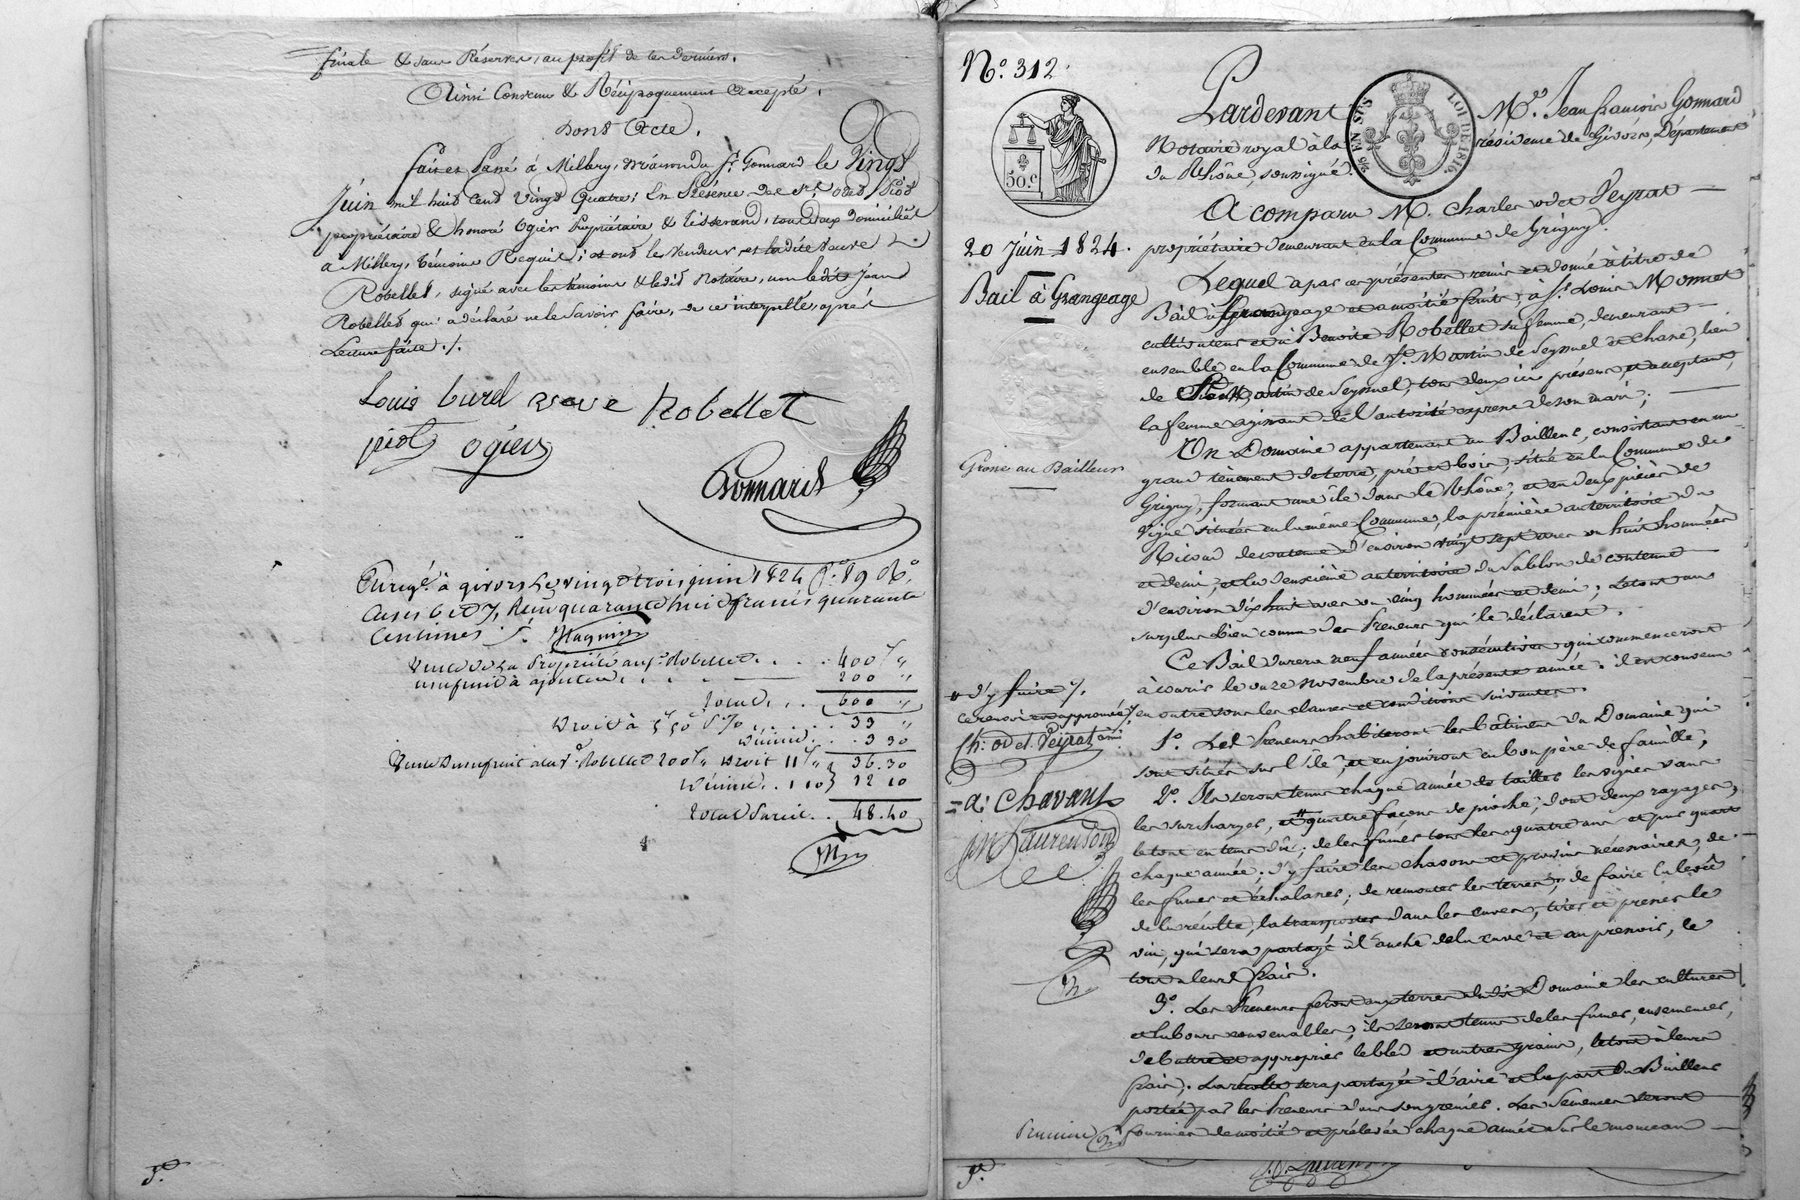 finale & sans Réserves, au profit de ces derniers.
Ainsi Convenu & Réciproquement accepté,
Dont Acte,
fait et Passé à Millery, Gonnard le Vingt
Juin mil huit cent Vingt Quatre; En Présence de Piot
propriétaire & honoré Ogier Propriétaire & Tisserand, tous deux domiciliés
à Millery, témoins Requis; et ont les vendeurs et ladite veuve
Robellet, signé avec les témoins & ledit Notaire, non ledit Jean
Robellet qui a déclaré ne le Savoir faire, de ce interpellé, après
Lecture faite ./.
Louis burel veuve Robellet
piot ogier
Gonnard
Enregé à givors le vingt trois juin 1824 fo. 89 Ro.
Cases 6 et 7, Reçu quarante huit francs quarante
Centimes
Vente de la Propriété au Robellet . . . . 400 f "
usufruit à ajouter . . . 200 "
Total . . 600 "
Droit à 5 f 50 P % . . . . 33 "
Décime . . . 3 30
Vente Dusufruit à la Ve Robellet 200 f " Droit 11 f " 36.30
Décime . . 1 10 } 12 10
Total Pareil . . 48.40
No. 312.
50.c
20 Juin 1824.
Bail à Grangeage
Grosse au Bailleur
Pardevant Me. Jean françois Gonnard
Notaire royal à la résidence de Givors, Département
du Rhône, soussigné.
EN SUS
LOI DE 1816
A comparu M. Charles odet Peyrat —
propriétaire demeurant en la Commune de Grigny.
Lequel a par ces présentes remis et donné à titre de
Bail à Grangeage et à moitié fruits, à Sr. Louis Monnet
cultivateur et à Benoite Robellet sa femme, demeurant —
ensemble en la Commune de St. Martin de Seyssuel et Chane, lieu
de St Martin de Seyssuel, tous deux ici présens, et acceptant,
la femme agissant de l'autorité expresse de son mari; —
Un Domaine appartenant au Bailleur, consistant en un
grand tènement de terre, prés et bois, situé en la Commune de
Grigny, formant une île dans le Rhône; et en deux pièces de
Vigne situées en la même Commune, la première au territoire du
Ricou de contenue d'environ vingt sept ares ou huit hommées
et demi; et la deuxième au territoire du Sablon de contenue —
d'environ dixhuit ares ou cinq hommées et demi; Le tout au
surplus bien connu des Preneurs qui le déclarent.
Ce Bail durera neuf années consécutives qui commenceront
à courir le onze novembre de la présente année. il est convenu
en outre sous les clauses et conditions suivantes.
1o. Les Preneurs habiteront les bâtimens du Domaine qui
sont situés sur l'île, et en jouiront en bon père de famille;
2o. Ils seront tenus chaque année de tailler les vignes sans
les surcharger, # quatre façons de pioche, dont deux rayages,
le tout en tems dû; de les fumer tous les quatre ans et par quart
chaque année; d'y faire les chasons et provins nécessaires, de
les fumer et échalasser; de remonter les terres; de faire la levée
de la récolte, la transporter dans les cuves, tirer et presser le
vin, qui sera partagé à l'anche de la cuve et au pressoir, le
tout à leurs frais.
3o. Les Preneurs feront aux terres dudit Domaine les cultures
et labours convenables; ils seront tenus de les fumer, ensemencer,
de battre et approprier le bled et autres grains, le tout à leurs
frais. La récolte sera partagée à l'aire et la part du Bailleur
portée par les Preneurs dans son grenier. Les Semences seront —
fournies de moitié et prélevées chaque année sur le monceau —
# d'y faire /.
ce renvoi est approuvé
Ch: odet Peyrat
a: Chavant
jn Laurenson
Première